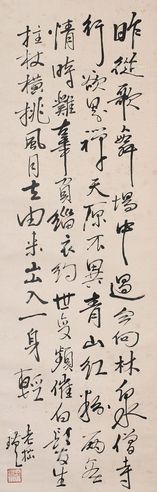 昨從歌舞場中過今向林泉僧寺
行欲界禪天原不異青山紅粉兩無
情時難辜負緇衣約世變頻催白髮生
拄杖橫挑風月去由來出入一身輕
老松